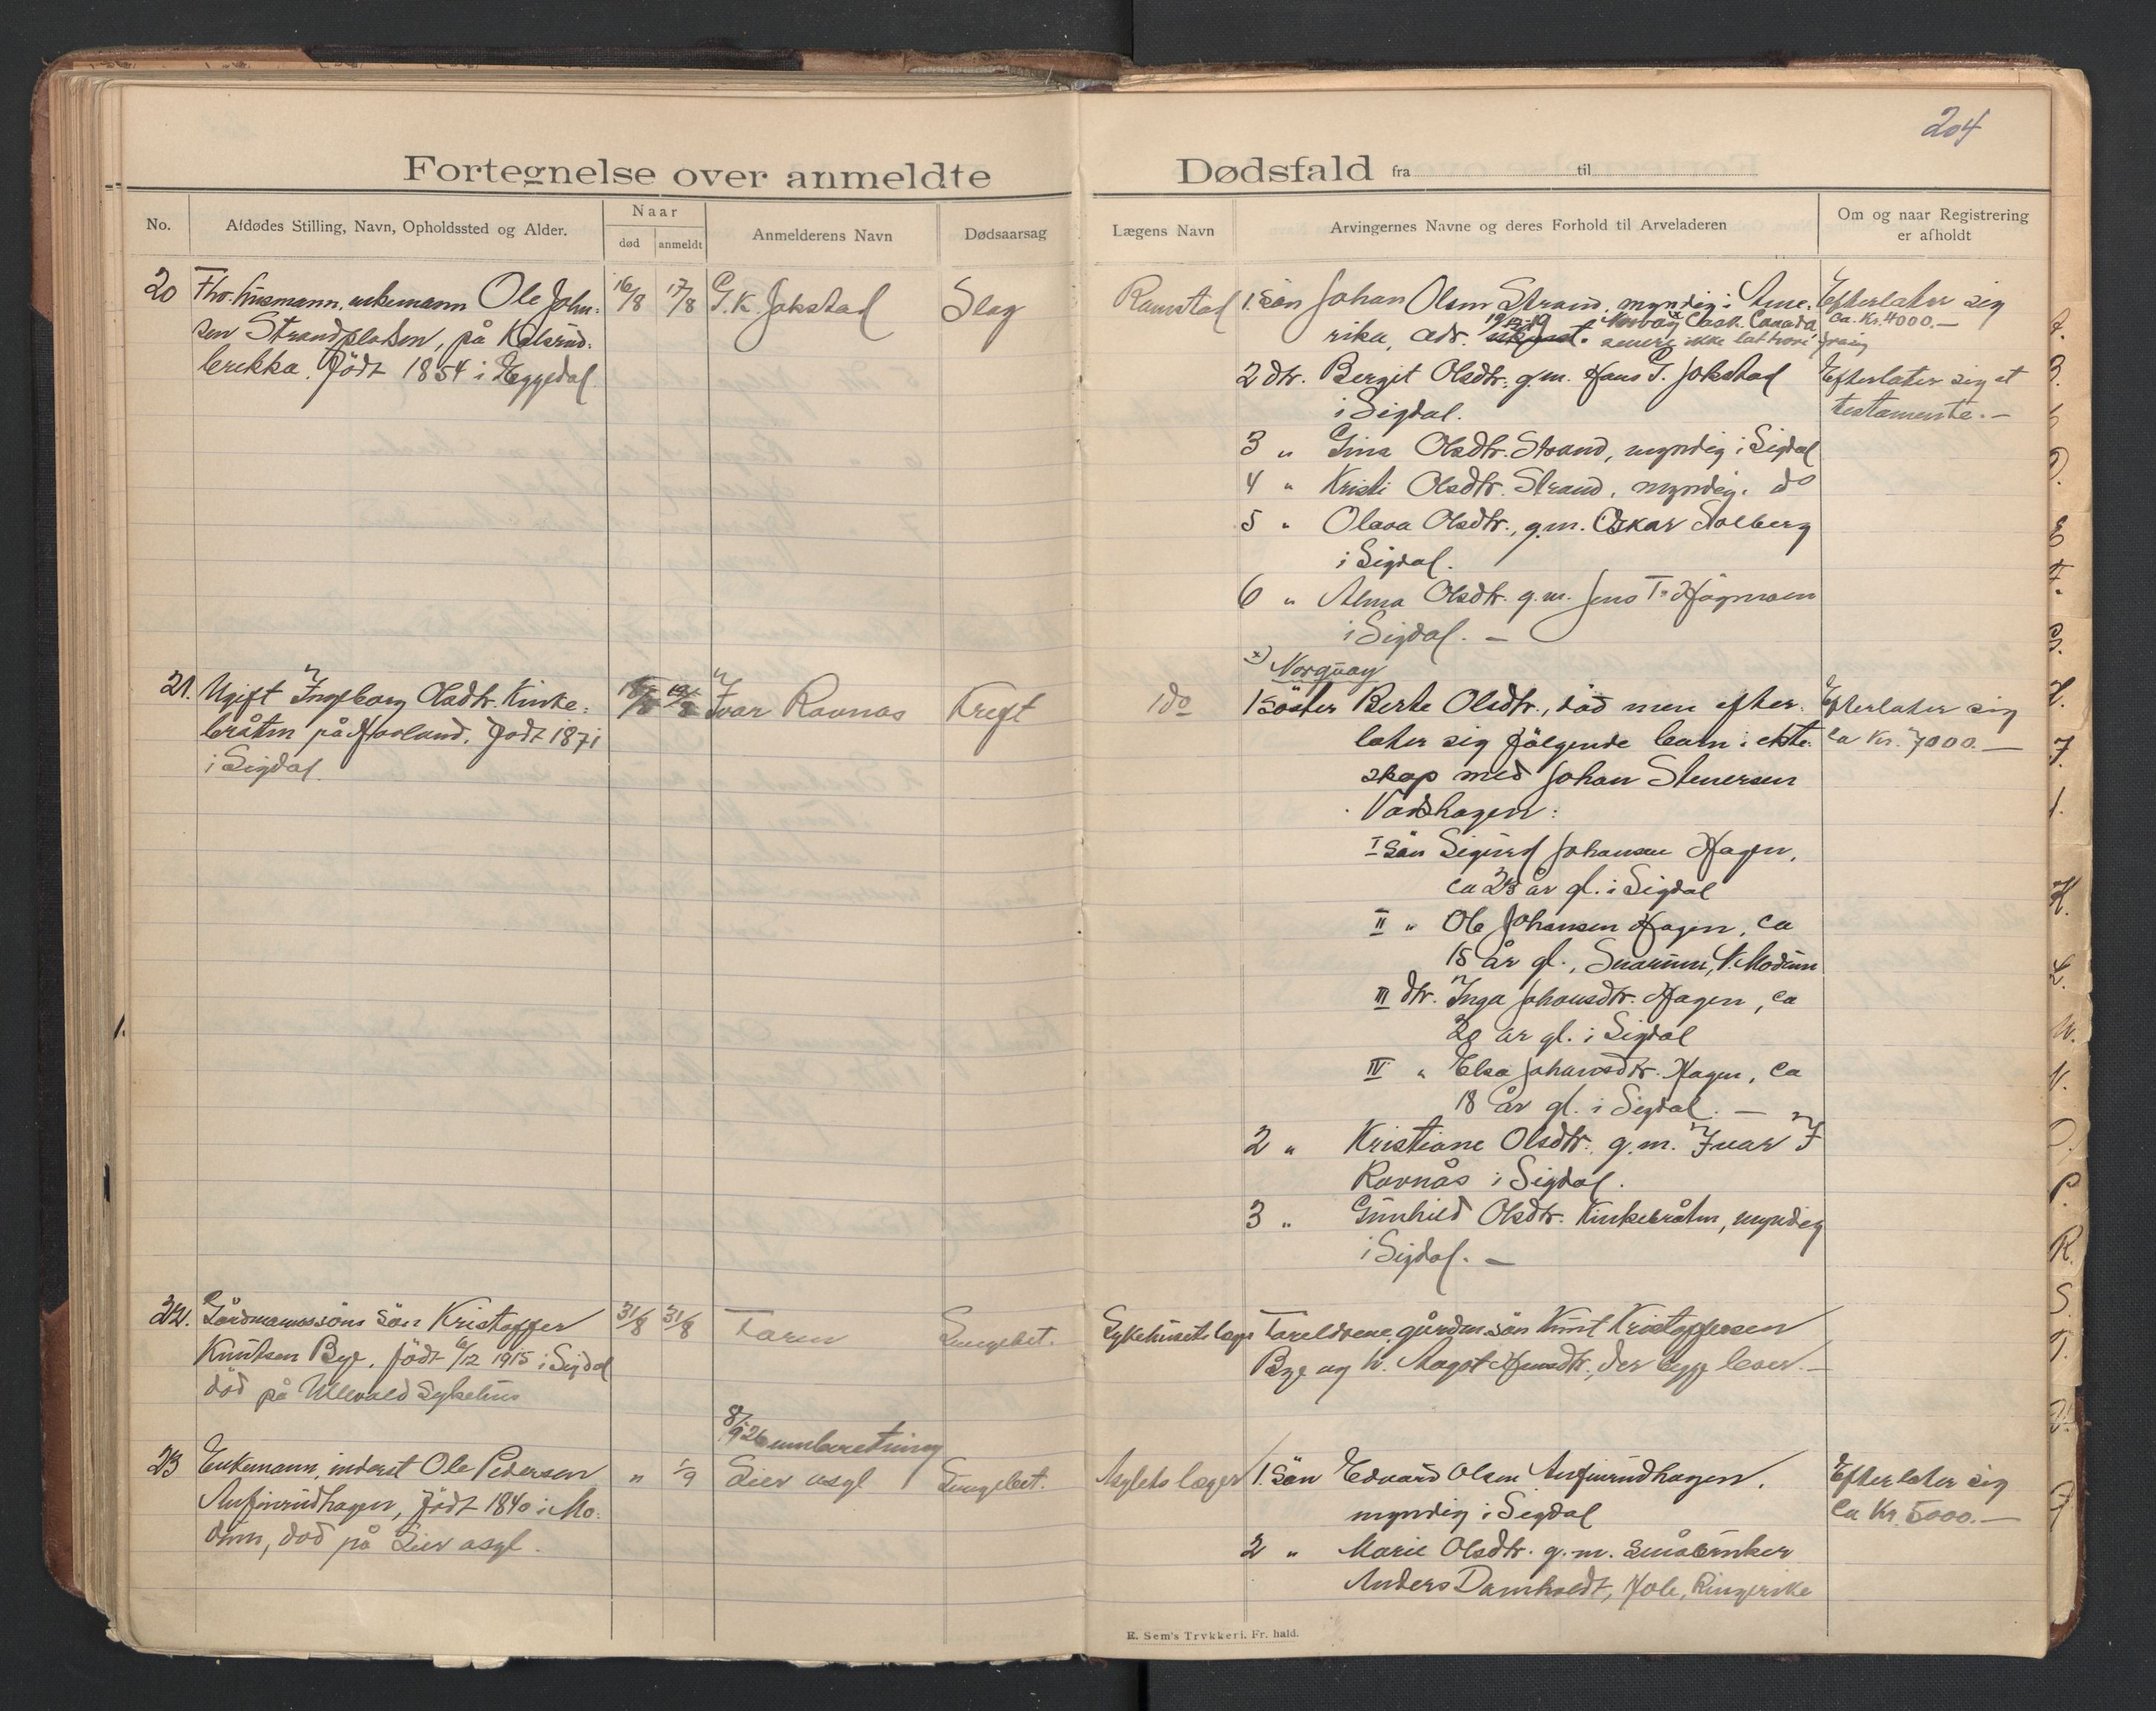 204
Fortegnelse over anmeldte Dødsfald fra til
No.
Afdødes Stilling, Navn, Opholdssted og Alder.
Naar
død
anmeldt
Anmelderens Navn
Dødsaarsag
Lægens Navn
Arvingernes Navne og deres Forhold til Arveladeren
Om og naar Registrering
er afholdt
20 Fhv. husmann, enkemann Ole John-
sen Strandpladsen, på
brekka. Født 1854 i Eggedal
16/8 17/8 G. K. Jokstad Slag
Ramstad
1. Sön Johan Olsen Strand, myndig i Ame-
rika, adr. ukjent. 19/12-19 Norway Sask. Canada
senere ikke latt höre fra sig
2 dtr. Bergit Olsdtr. g.m. Hans G. Jokstad
i Sigdal.
3 " Gina Olsdtr. Strand, myndig i Sigdal
4 " Kristi Olsdtr. Strand, myndig. do
5 " Olava Olsdtr., g.m. Oskar Solberg
i Sigdal.
6 " Alma Olsdtr. g.m. Jens T. Hågmoen
i Sigdal. —
x) Norquay
Efterlater sig
ca. Kr. 4000.—
Efterlater sig et
testamente.—
21. Ugift Ingeborg Olsdtr. Kinke-
bråten på Havland. Født 1871
i Sigdal.
18/8 19/8 Ivar Ravnås Kreft
do
1 Söster Berte Olsdtr., död men efter-
later sig følgende barn i ekte-
skap med Johan Stenersen
Vadshagen:
I Sön Sigurd Johansen Hagen,
ca 23 år gl. i Sigdal
II " Ole Johansen Hagen, ca
15 år gl., Snarum, N. Modum
III dtr. Inga Johansdtr. Hagen, ca
20 år gl. i Sigdal
IV " Elsa Johansdtr. Hagen, ca
18 år gl. i Sigdal. —
2 " Kristiane Olsdtr. g.m. Ivar I
Ravnås i Sigdal.
3 " Gunhild Olsdtr. Kinkebråten, myndig
i Sigdal. —
Efterlater sig
ca Kr. 7000.—
22. Gårdmannssöns sön Kristoffer
Knutsen Bye. Født 6/12 1915 i Sigdal
död på Ullevald Sykehus
31/8 31/8 Faren Lungebet.
Sykehusets læge
Foreldrene, gårdm.sön Knut Kristoffersen
Bye og h. Magot Hansdtr., der begge lever. —
8/9 26 innberetning
23 Enkemann, inderst Ole Pedersen
Anfinrudhagen, Født 1840 i Mo-
dum, död på Lier asyl.
" 1/9 Lier asyl Lungebet.
Asylets læger
1. Sön Edvard Olsen Anfinrudhagen,
myndig i Sigdal
2 " Marie Olsdtr. g.m. småbruker
Anders Damholdt, Hole, Ringerike
Efterlater sig
ca Kr. 5000.—
E. Sem's Trykkeri, Fr.hald.